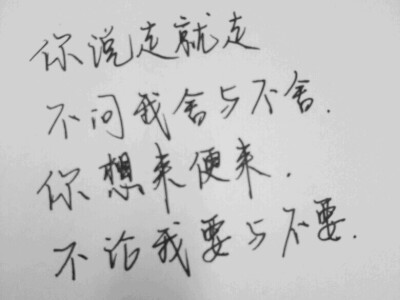 你说走就走
不问我舍与不舍.
你想来便来.
不论我要与不要.